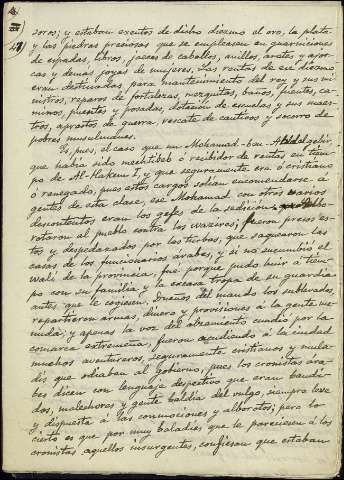 47)
sores; y estaban exentos de dicho diezmo el oro, la plata
y las piedras preciosas que se empleasen en guarniciones
de espadas, libros, jaeces de caballos, anillos, aretes y ajor-
cas y demás joyas de mujeres. Las rentas de ese diezmo
eran destinadas para mantenimiento del rey y sus mi-
nistros, reparos de fortalezas, mezquitas, baños, fuentes, ca-
minos, puentes y posadas, dotación de escuelas y sus maes-
tros, aprestos de guerra, rescate de cautivos y socorro de
pobres musulmanes.
Es, pues, el caso que un Mohamad-ban-Abdelgebir,
que había sido mechtibeb ó recibidor de rentas en tiem-
po de Al-Hakem I, y que seguramente era ó cristiano
ó renegado, pues estos cargos solían encomendarse á
gentes de esta clase, ese Mohamad con otros varios
descontentos eran los gefes de la sedición. Albo-
rotaron al pueblo contra los waxires; fueron presos es-
tos y despedazados por las turbas, que saquearon las
casas de los funcionarios árabes, y si no sucumbió el
wali de la provincia, fué porque pudo huir á tiem-
po con su familia y la escasa tropa de su guardia
antes que le cogiesen. Dueños del mando los sublevados
repartieron armas, dinero y provisiones á la gente me-
nuda; y apenas la voz del alzamiento cundió por la
comarca extremeña, fueron acudiendo á la ciudad
muchos aventureros, seguramente cristianos y mula-
dis que odiaban al gobierno, pues los cronistas ára-
bes dicen con lenguaje despectivo que eran bandi-
dos, malechores y gente baldía del vulgo, siempre leve
y dispuesta á las conmociones y alborotos; pero lo
cierto es que por muy baladíes que le pareciesen á los
cronistas aquellos insurgentes, confiesan que estaban